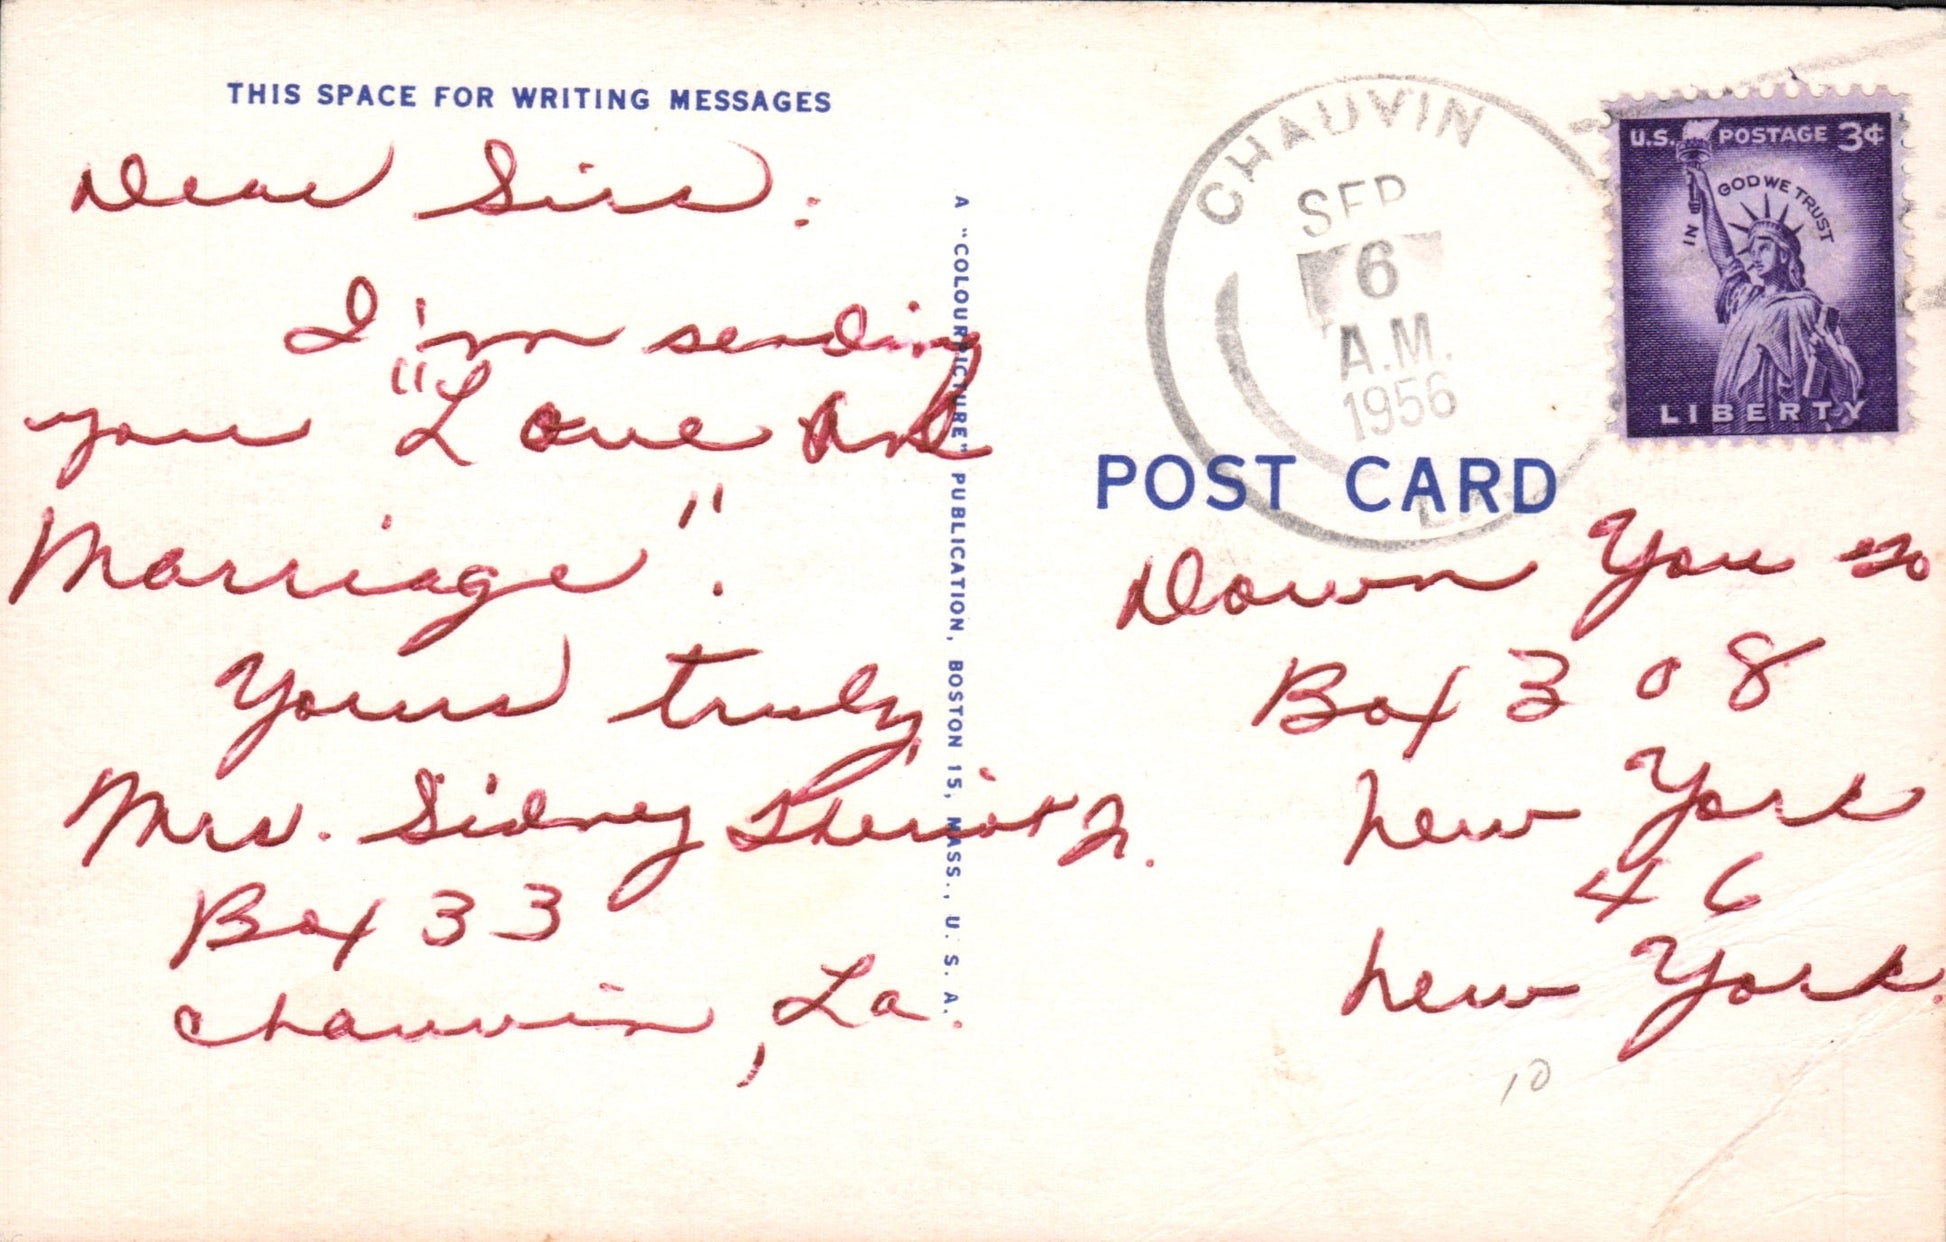 THIS SPACE FOR WRITING MESSAGES
Dear Sirs:
I'm sending
you "Love And
Marriage".
Yours truly,
Mrs. Sidney Theriot Jr.
Box 33
Chauvin, La.
A "COLOURPICTURE" PUBLICATION, BOSTON 15, MASS., U. S. A.
CHAUVIN
SEP
6
A.M.
1956
LA.
U.S. POSTAGE 3¢
IN GOD WE TRUST
LIBERTY
POST CARD
Down You Go
Box 308
New York
46
New York.
10